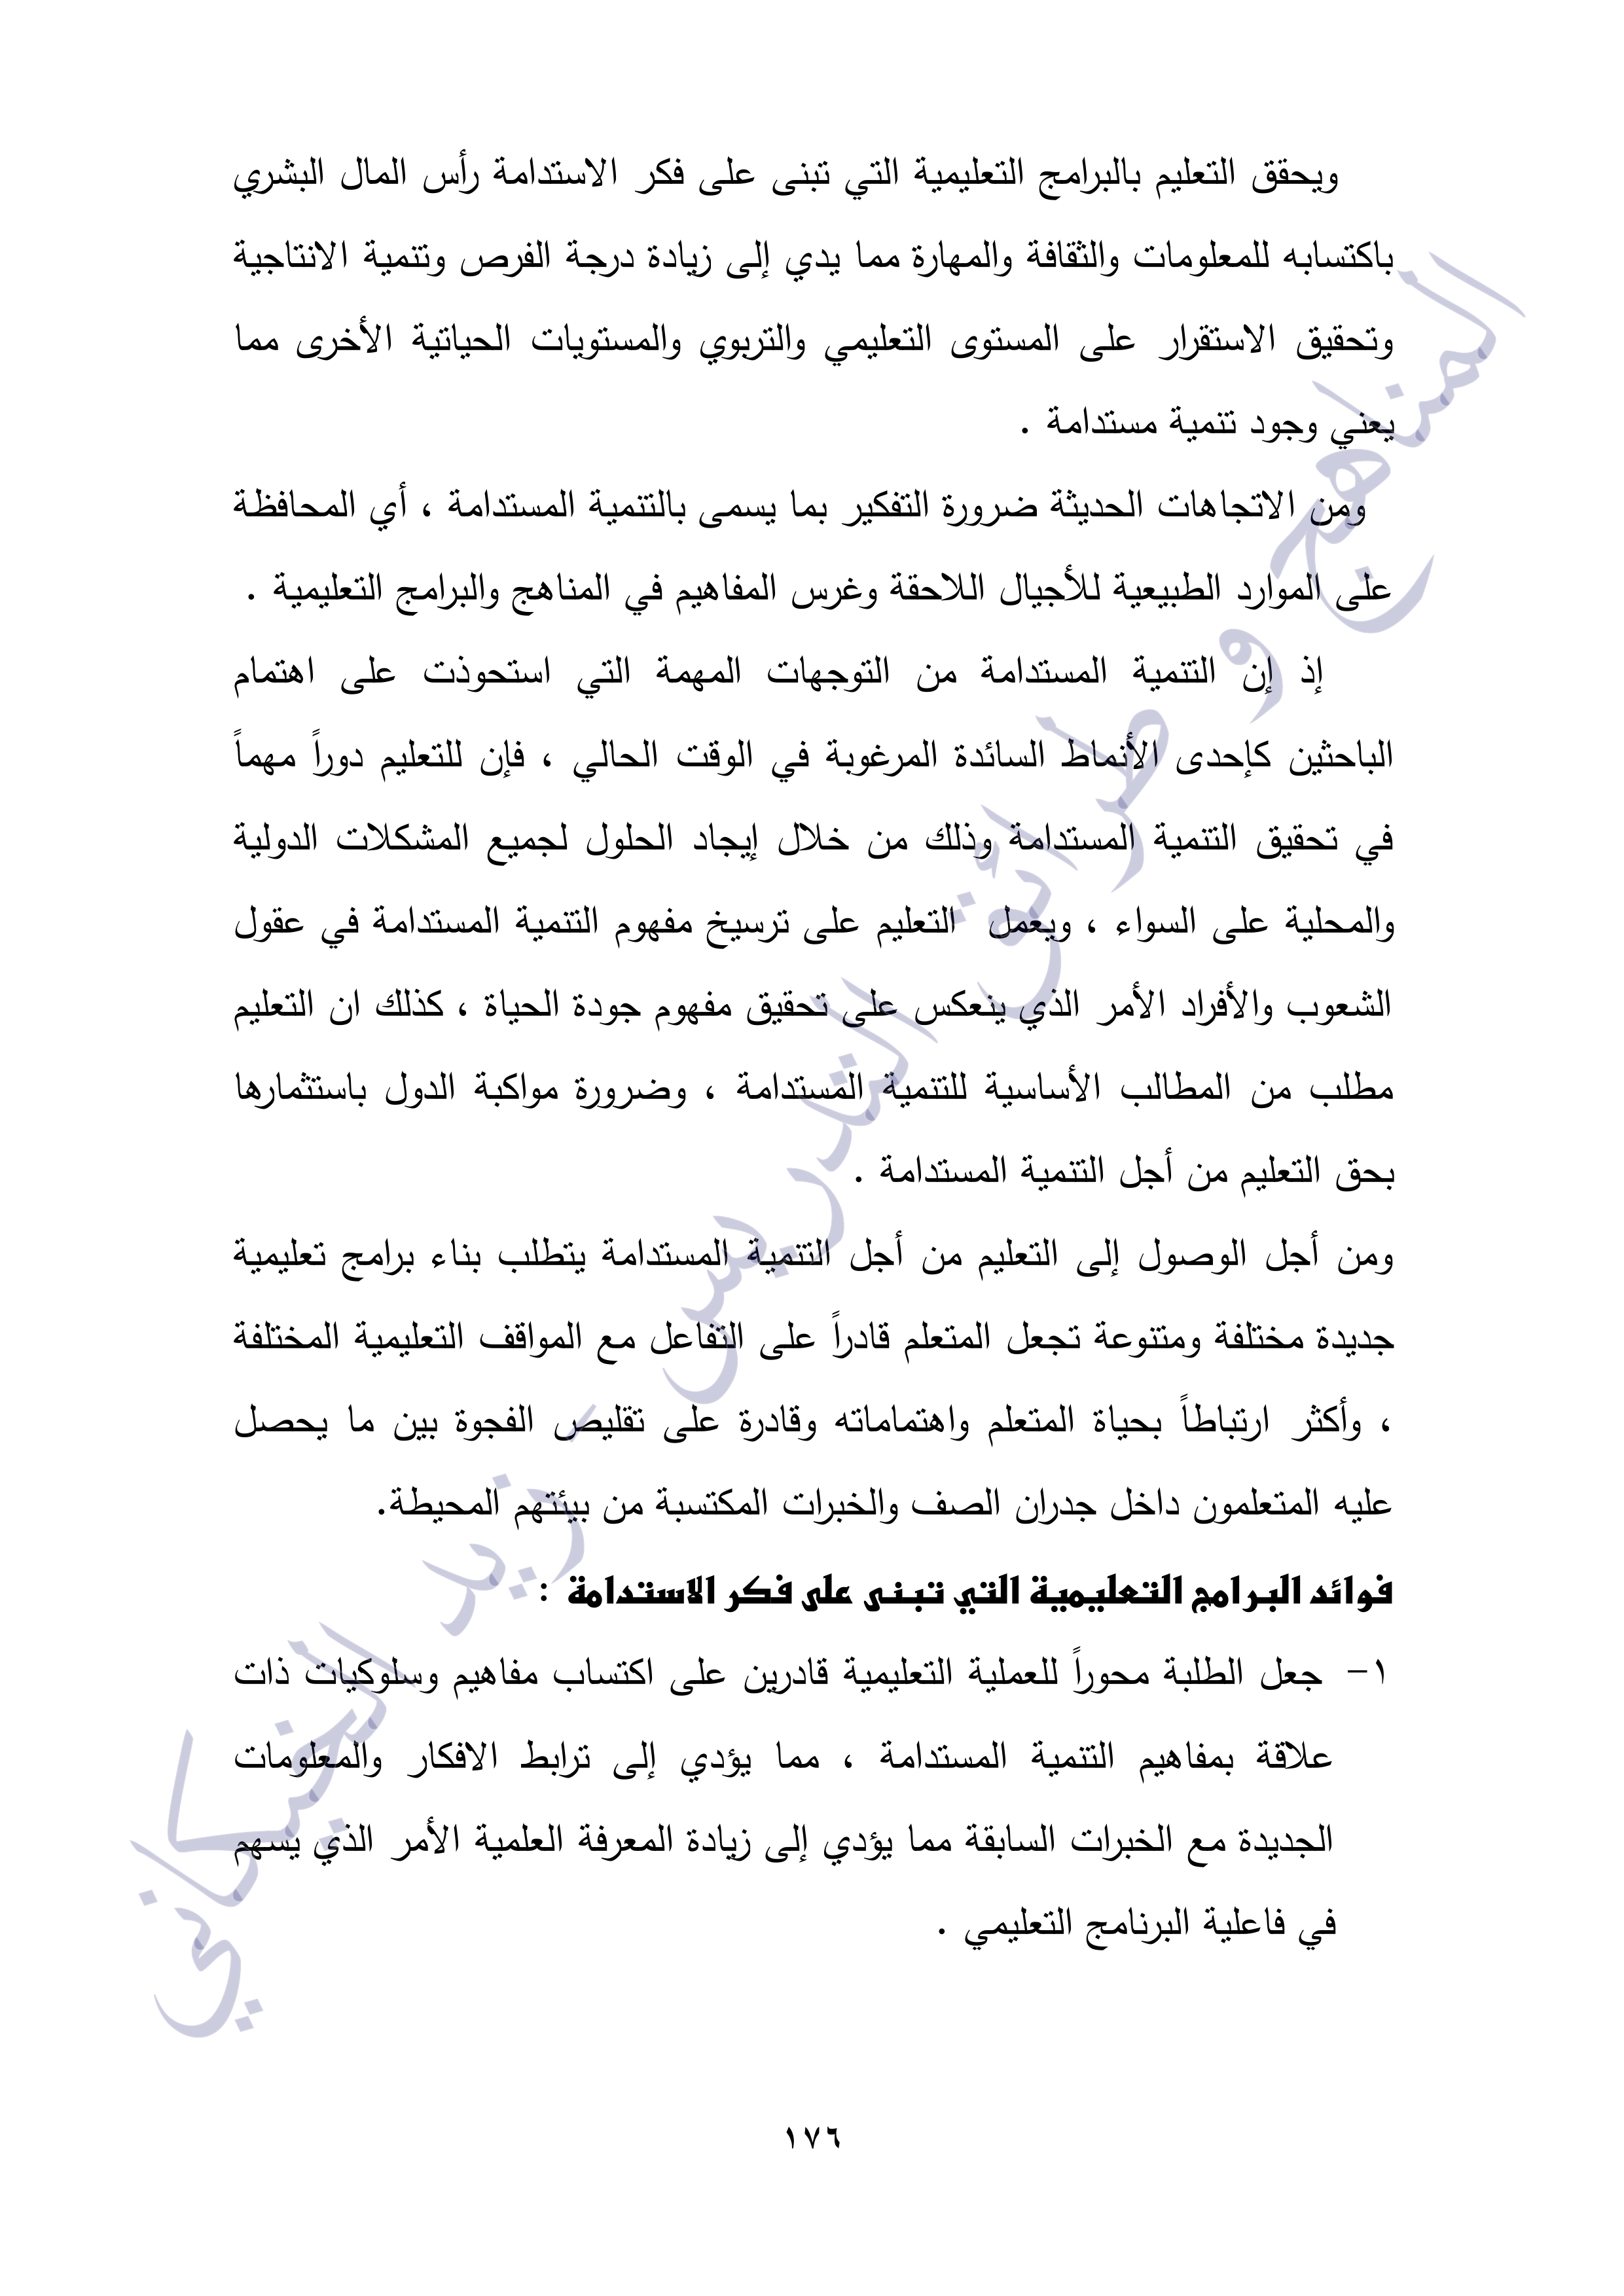 ويحقق التعليم بالبرامج التعليمية التي تبنى على فكر الاستدامة رأس المال البشري
باكتسابه للمعلومات والثقافة والمهارة مما يدي إلى زيادة درجة الفرص وتنمية الانتاجية
وتحقيق الاستقرار على المستوى التعليمي والتربوي والمستويات الحياتية الأخرى مما
يعني وجود تنمية مستدامة .
ومن الاتجاهات الحديثة ضرورة التفكير بما يسمى بالتنمية المستدامة ، أي المحافظة
على الموارد الطبيعية للأجيال اللاحقة وغرس المفاهيم في المناهج والبرامج التعليمية .
إذ إن التنمية المستدامة من التوجهات المهمة التي استحوذت على اهتمام
الباحثين كإحدى الأنماط السائدة المرغوبة في الوقت الحالي ، فإن للتعليم دوراً مهماً
في تحقيق التنمية المستدامة وذلك من خلال إيجاد الحلول لجميع المشكلات الدولية
والمحلية على السواء ، ويعمل التعليم على ترسيخ مفهوم التنمية المستدامة في عقول
الشعوب والأفراد الأمر الذي ينعكس على تحقيق مفهوم جودة الحياة ، كذلك ان التعليم
مطلب من المطالب الأساسية للتنمية المستدامة ، وضرورة مواكبة الدول باستثمارها
بحق التعليم من أجل التنمية المستدامة .
ومن أجل الوصول إلى التعليم من أجل التنمية المستدامة يتطلب بناء برامج تعليمية
جديدة مختلفة ومتنوعة تجعل المتعلم قادراً على التفاعل مع المواقف التعليمية المختلفة
، وأكثر ارتباطاً بحياة المتعلم واهتماماته وقادرة على تقليص الفجوة بين ما يحصل
عليه المتعلمون داخل جدران الصف والخبرات المكتسبة من بيئتهم المحيطة.
فوائد البرامج التعليمية التي تبنى على فكر الاستدامة :
١- جعل الطلبة محوراً للعملية التعليمية قادرين على اكتساب مفاهيم وسلوكيات ذات
علاقة بمفاهيم التنمية المستدامة ، مما يؤدي إلى ترابط الافكار والمعلومات
الجديدة مع الخبرات السابقة مما يؤدي إلى زيادة المعرفة العلمية الأمر الذي يسهم
في فاعلية البرنامج التعليمي .
١٧٦
المناهج و طرائق التدريس - زيد الخيكاني